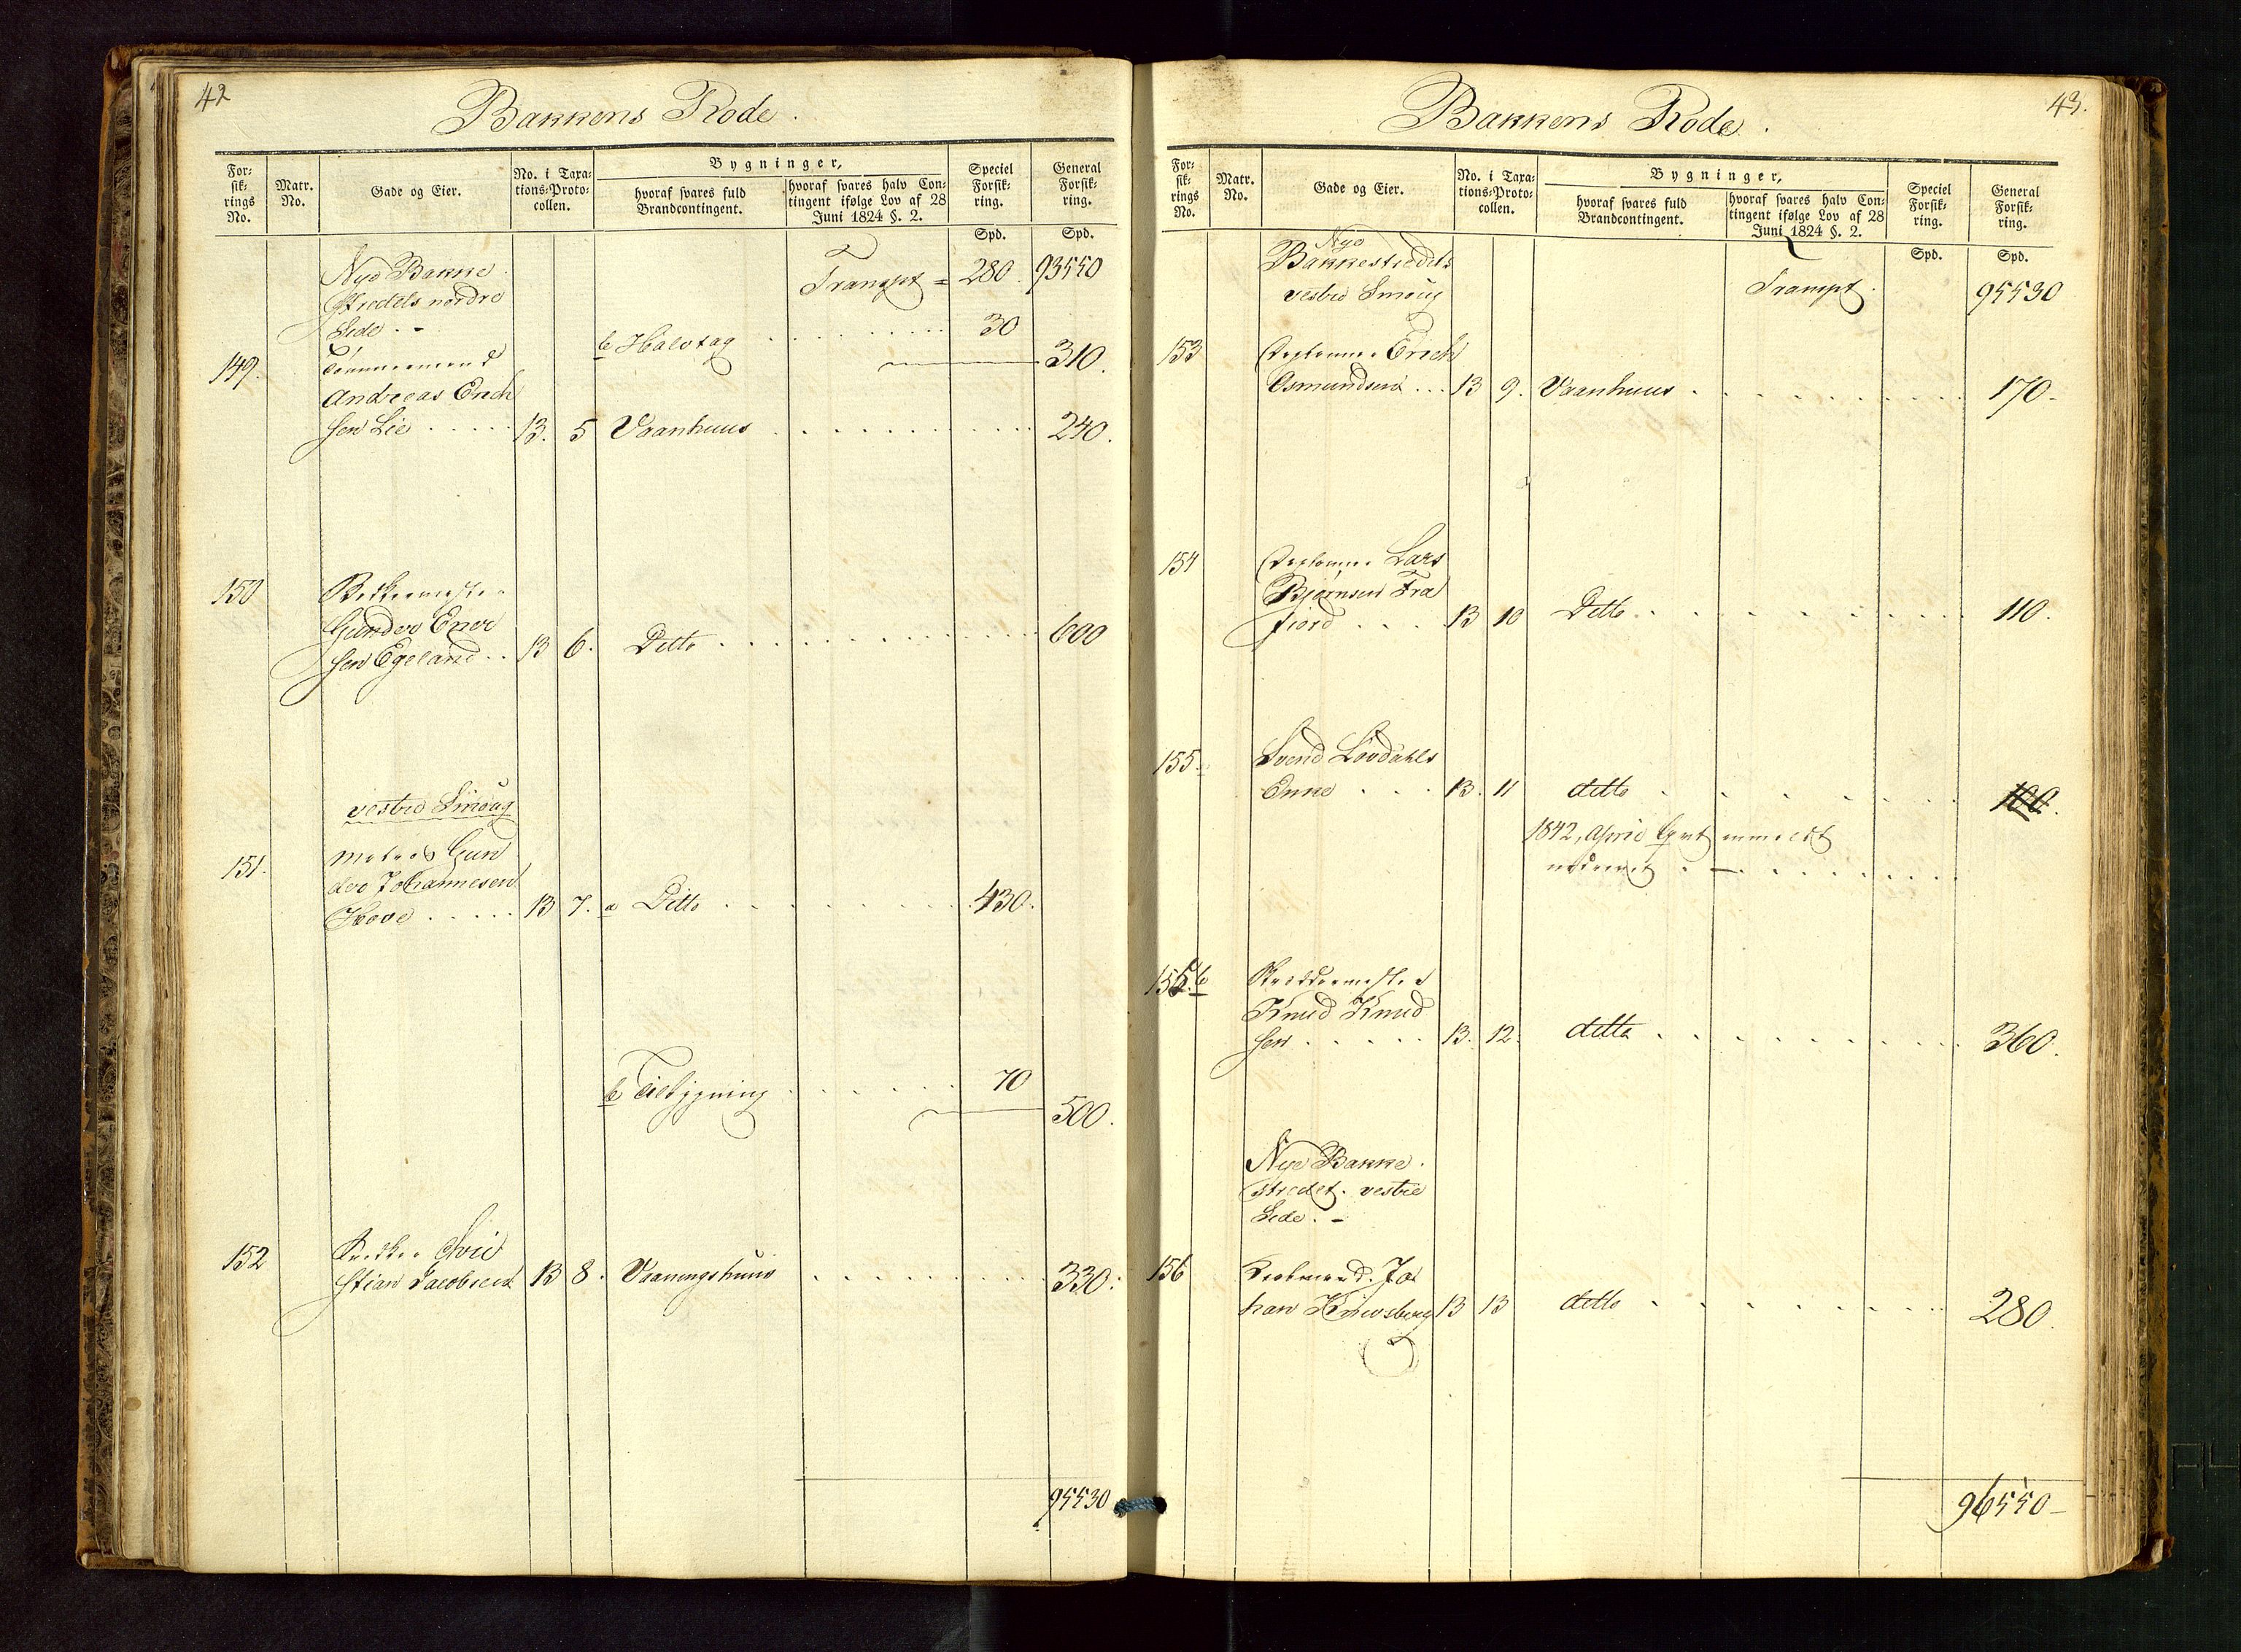 42
Bakkens Rode.
For-
sik-
rings
No.
Matr.
No.
Gade og Eier.
No. i Taxa-
tions-Proto-
collen.
Bygninger,
hvoraf svares fuld
Brandcontingent.
hvoraf svares halv Con-
tingent ifølge Lov af 28
Juni 1824 §. 2.
Speciel
Forsik-
ring.
General
Forsik-
ring.
Spd.
Spd.
Nye Bakke
Strædets nordre
Side. -
Transpt = 280. 93550
b Halvtag . . . . . . . 30
310.
149. Tømmermand
Andreas Erich
sen Lie . . . . . 13. 5 Vaanhuus . . . . . . . . . . 240.
150
Gunder Ener
sen Egeland . . 13 6. Ditto . . . . . . . . . . 600
vestre Smøug
151. Gun
der Johannesen
Hove . . . . . 13 7. a Ditto . . . . . . . 430.
b Tilbygning . . . . . . 70
500.
152 Chri
stian Jacobsen 13 8. Vaaningshuus . . . . . . . . . 330.
95530
43.
Bakkens Rode.
For-
sik-
rings
No.
Matr.
No.
Gade og Eier.
No. i Taxa-
tions-Proto-
collen.
Bygninger,
hvoraf svares fuld
Brandcontingent.
hvoraf svares halv Con-
tingent ifølge Lov af 28
Juni 1824 §. 2.
Speciel
Forsik-
ring.
General
Forsik-
ring.
Spd.
Spd.
Nye
Bakkestrædets
vestre Smøug
Transpt. 95530
153 Erich
Osmundsen . . . 13 9. Vaanhuus . . . . . . . . . . 170.
154 Lars
Bjørnsen Fra
fiord . . . . 13 10 Ditto . . . . . . . . . 110.
155. Svend Løvdahls
Enke . . . 13. 11 ditto . . . . . . . 100.
1842, April
155. b Skreddermester
Knud Knud
sen . . . . . 13. 12. ditto . . . . . . . . . 360.
Nye Bakke
strædet. vestre
Side. -
156 Jo
han 13 13 ditto . . . . . . . . 280.
96550